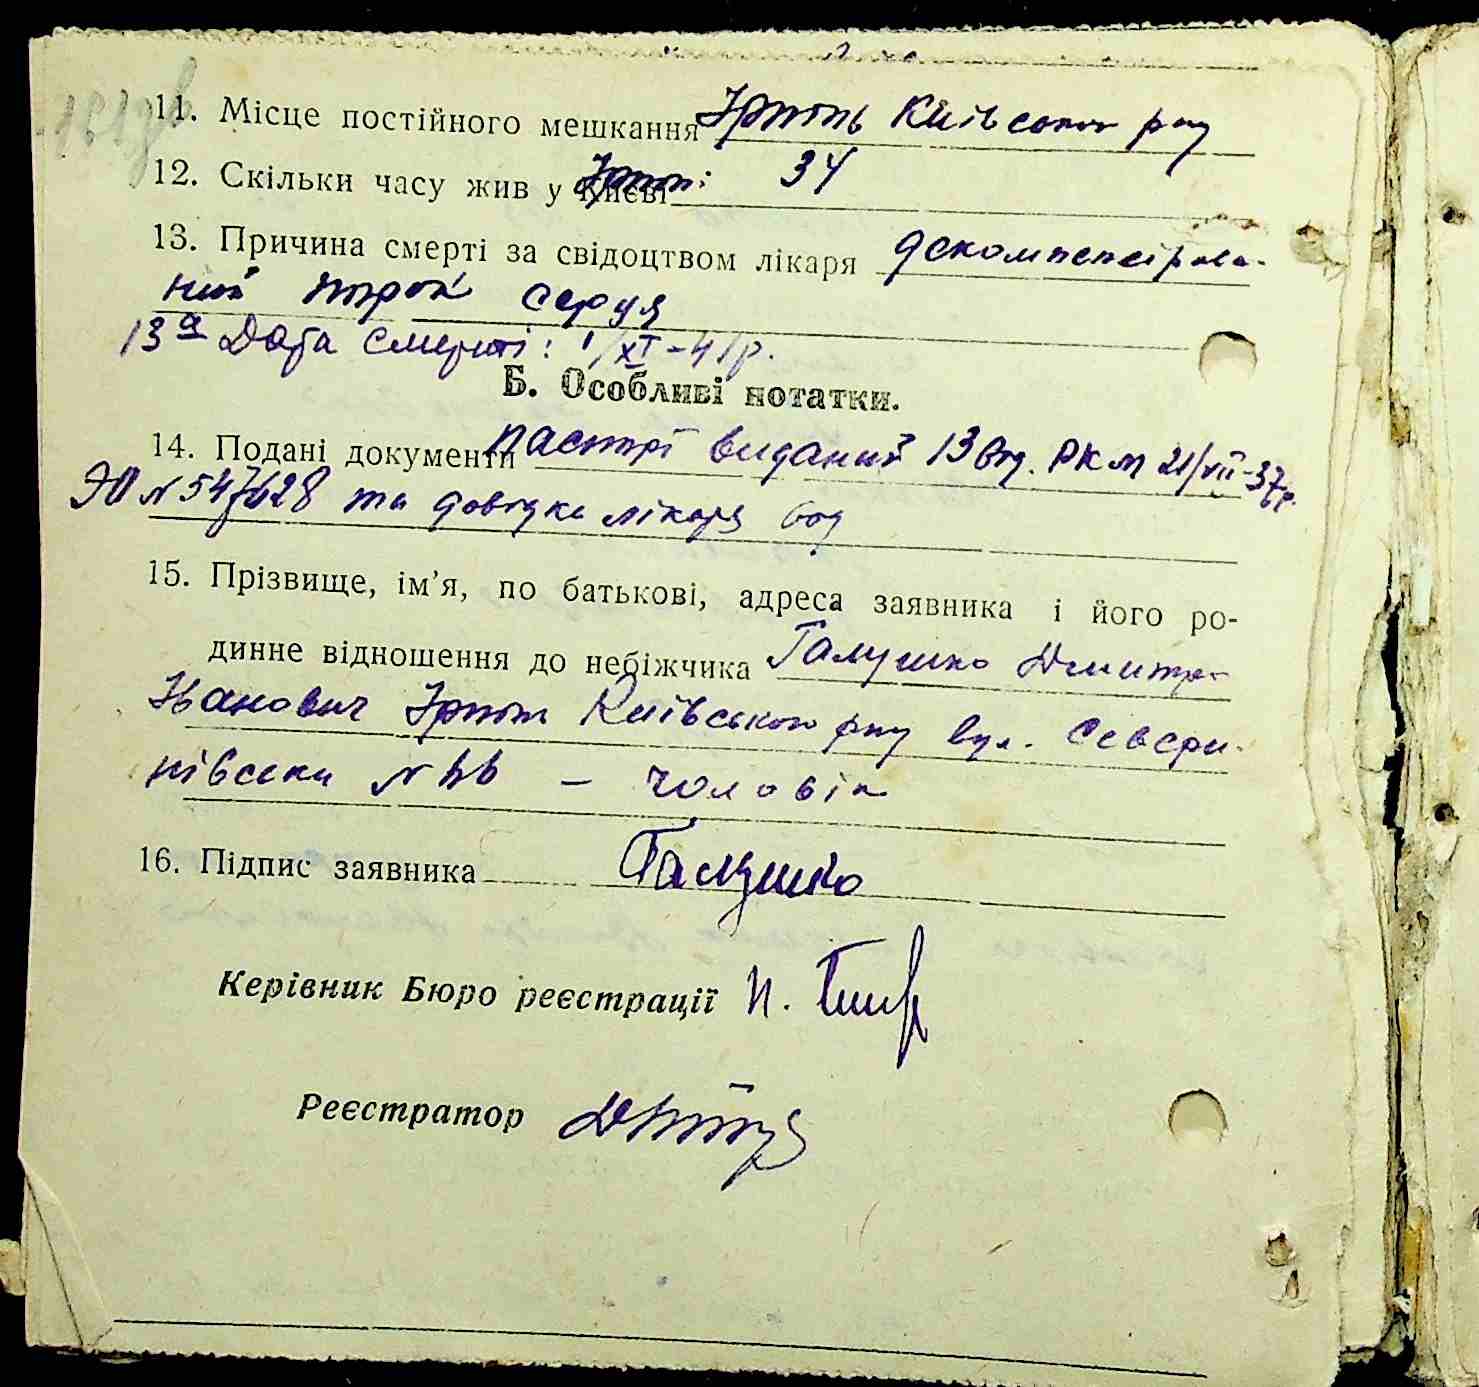 11. Місце постійного мешкання Ірпінь Київського р-ну
12. Скільки часу жив у Києві Ірпені: 34
13. Причина смерті за свідоцтвом лікаря декомпенсірова-
ний порок серця
13а Дата смерті: 1/XI-41р.
Б. Особливі нотатки.
14. Подані документи паспорт виданий 13 від. РКМ 21/VII-37р.
№ 547628 та довідка лікаря від
15. Прізвище, ім’я, по батькові, адреса заявника і його ро-
динне відношення до небіжчика Галушко Дмитро
Іванович Ірпінь Київського р-ну вул. Севери-
нівська № – чоловік
16. Підпис заявника Галушко
Керівник Бюро реєстрації
Реєстратор